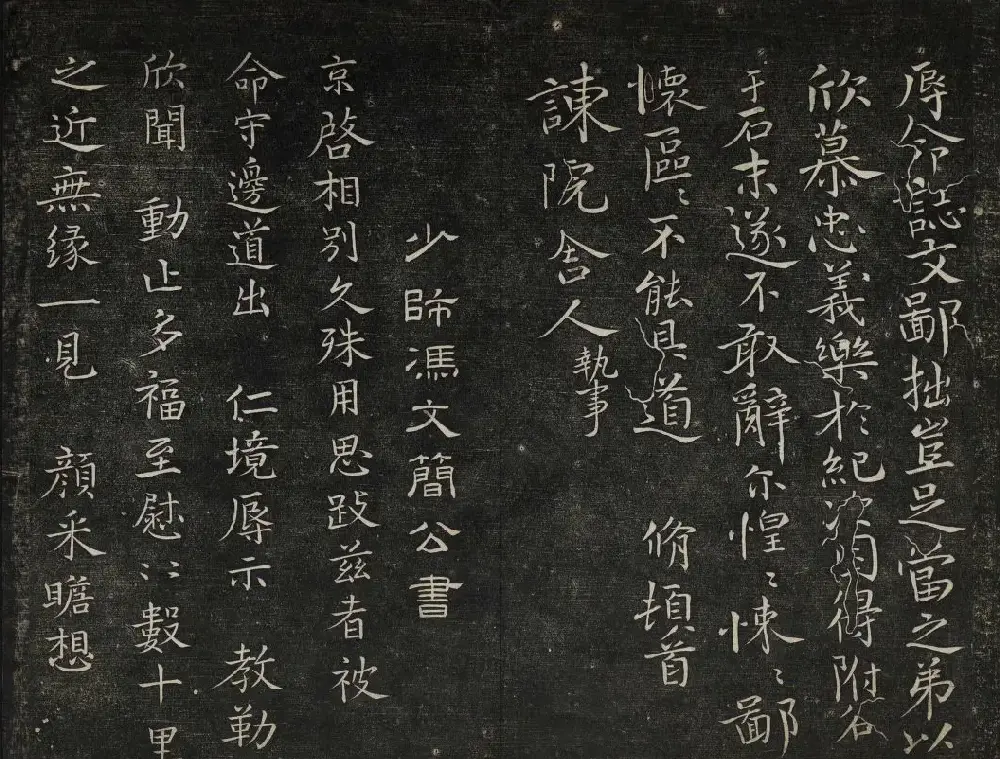 辱命誌文鄙拙豈足當之弟以
欣慕忠義樂於紀次得附名
于石未遂不敢辭尔惶〻悚〻鄙
懷區〻不能具道 脩頓首
諫院舍人執事
少師馮文簡公書
京啓相別久殊用思跂兹者被
命守邊道出 仁境辱示 教勒
欣聞 動止多福至慰〻數十里
之近無緣一見 顔采瞻想